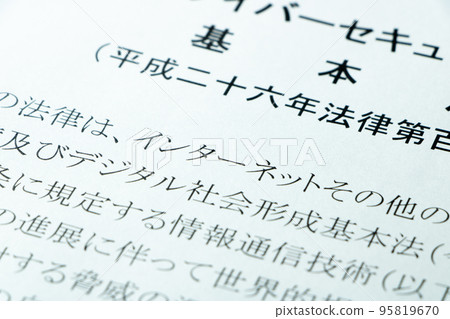 イバーセキュ
基　本
（平成二十六年法律第百
の法律は、インターネットその他の
及びデジタル社会形成基本法（
条に規定する情報通信技術（以
の進展に伴って世界的
する脅威の
PIXTA
pixta.jp - 95819670